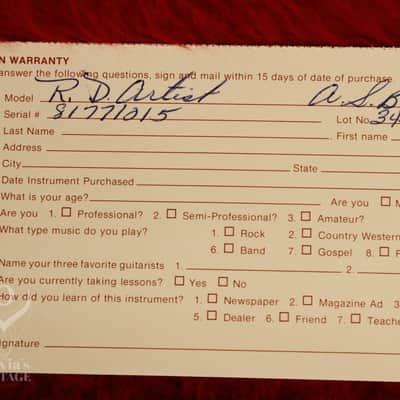 N WARRANTY
answer the following questions, sign and mail within 15 days of date of purchase.
Model R. D. Artist A. S. B
Serial # 81771015 Lot No. 34
Last Name First name
Address
City State
Date Instrument Purchased
What is your age? Are you ☐ M
Are you 1. ☐ Professional? 2. ☐ Semi-Professional? 3. ☐ Amateur?
What type music do you play? 1. ☐ Rock 2. ☐ Country Western
6. ☐ Band 7. ☐ Gospel 8. ☐ F
Name your three favorite guitarists 1. 2.
Are you currently taking lessons? ☐ Yes ☐ No
How did you learn of this instrument? 1. ☐ Newspaper 2. ☐ Magazine Ad 3
5. ☐ Dealer 6. ☐ Friend 7. ☐ Teache
Signature